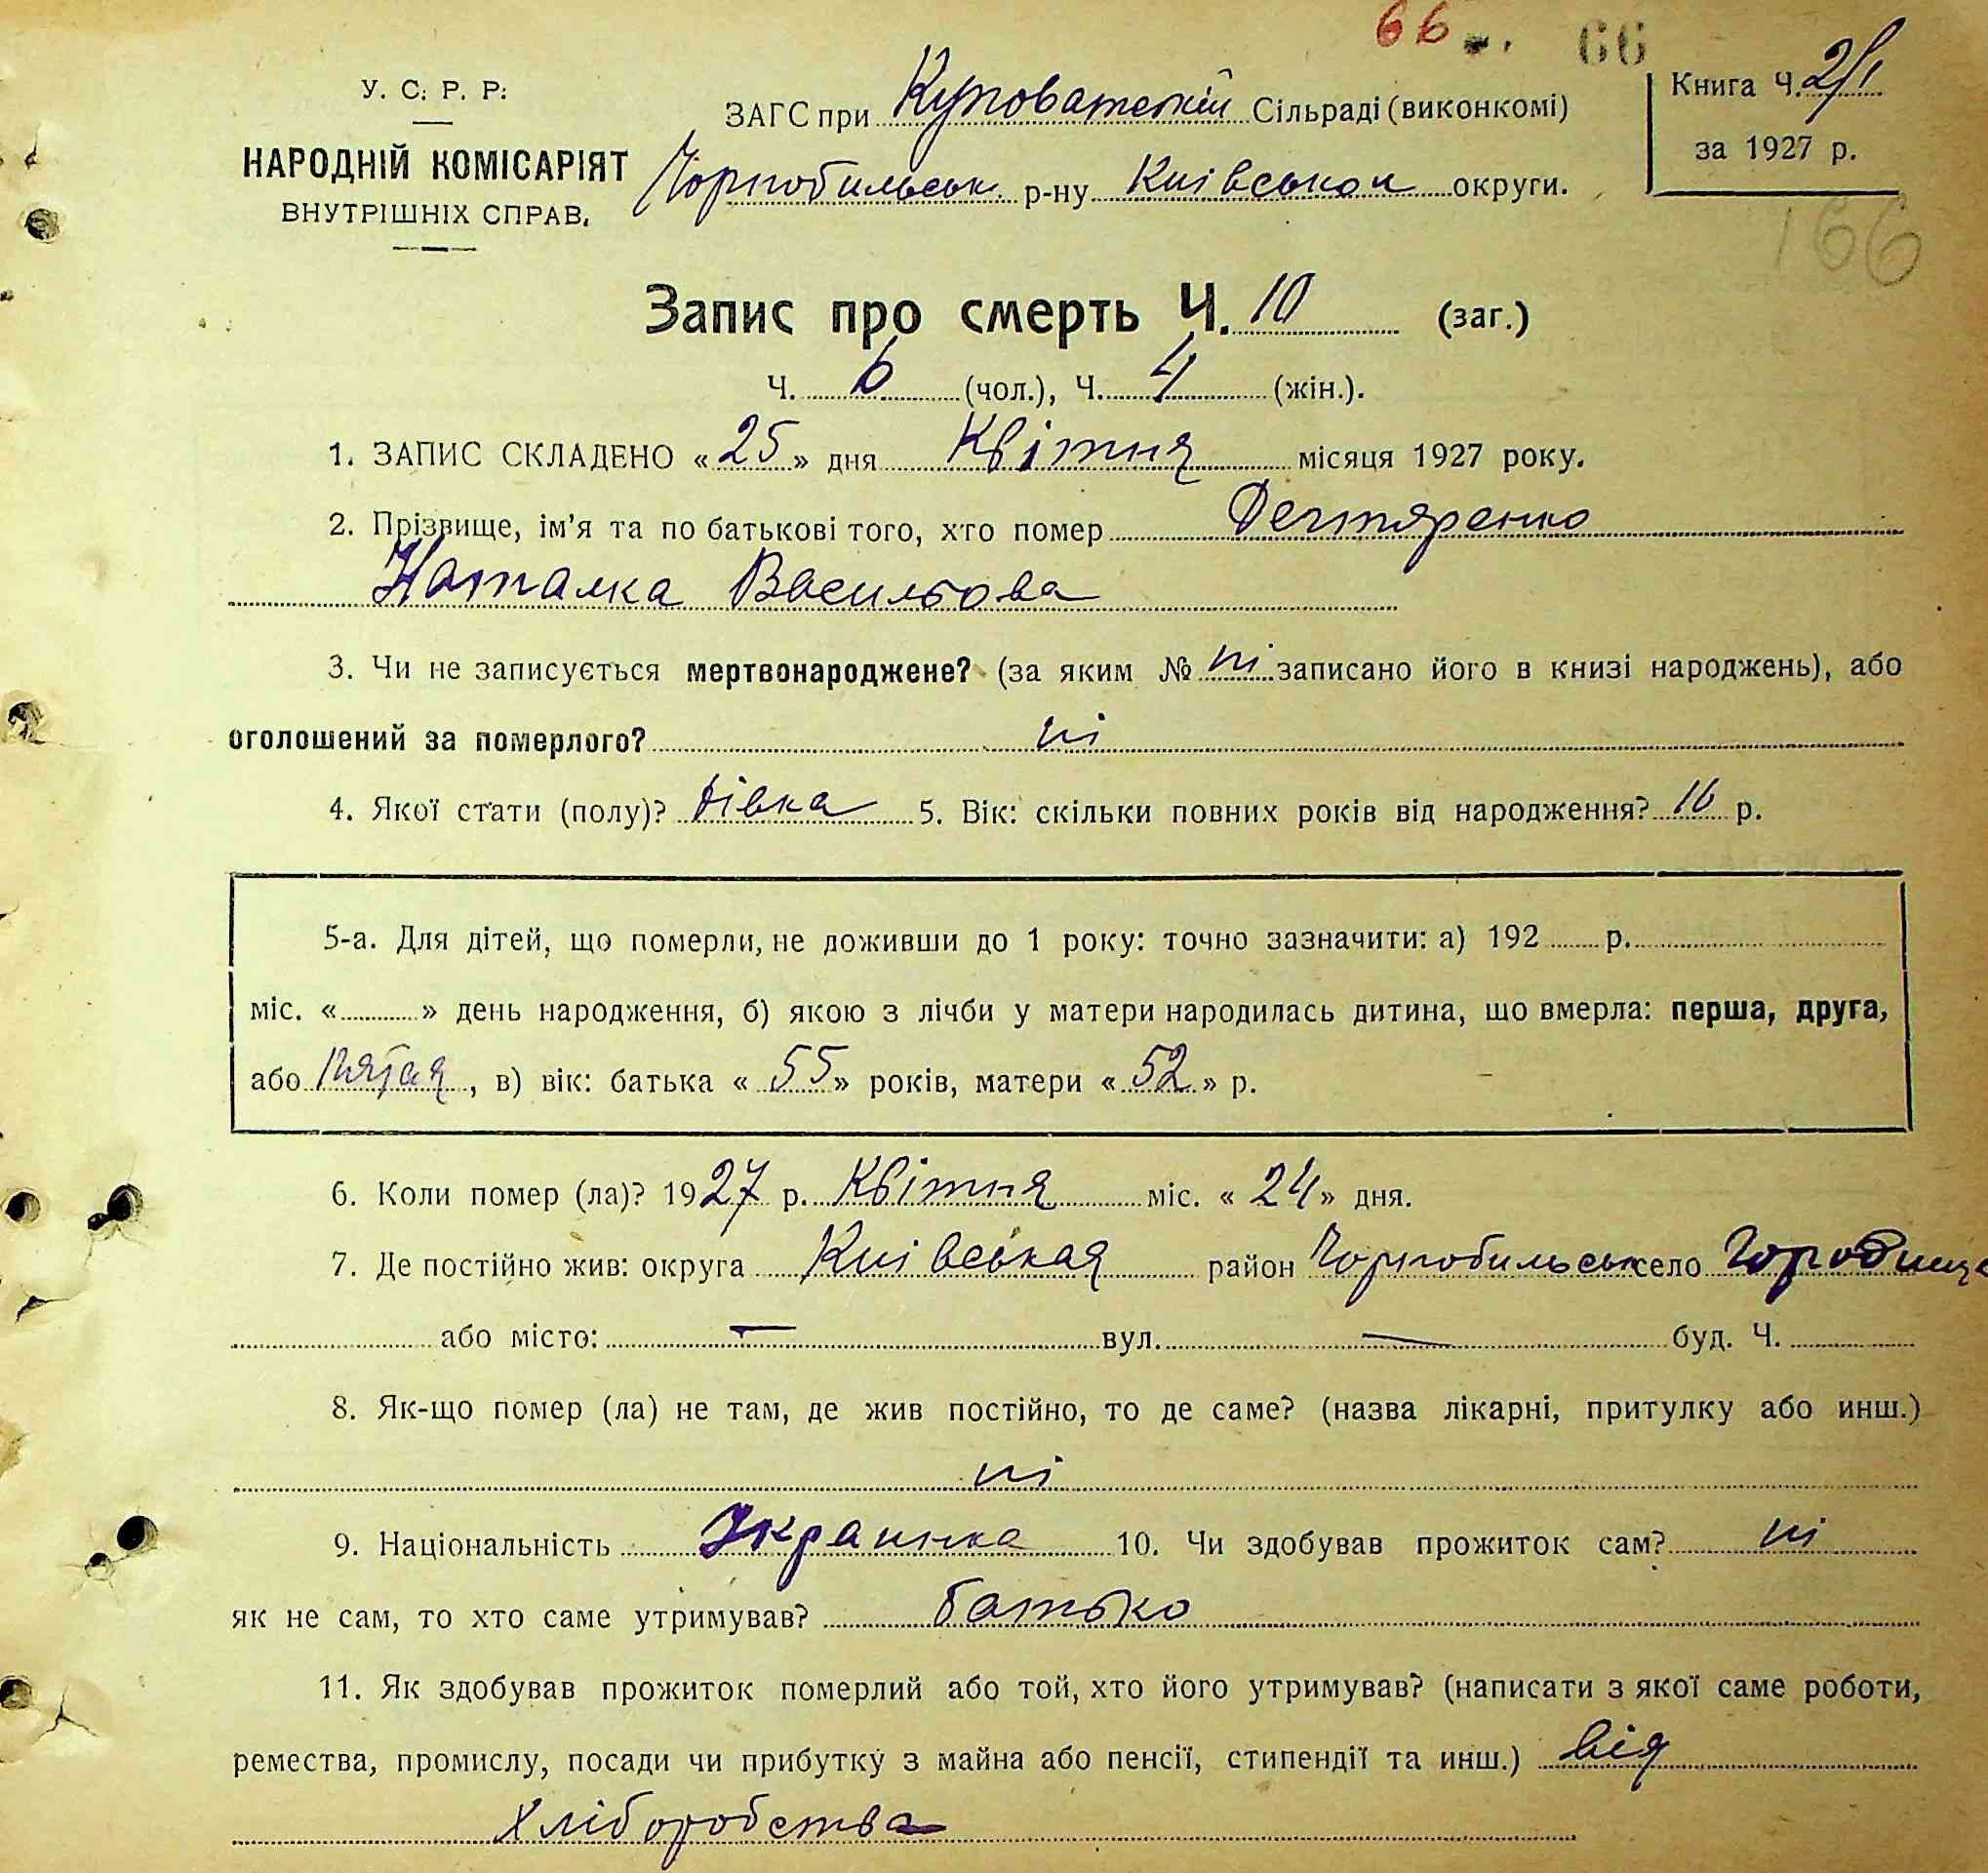 66 66
У. С. Р. Р.
ЗАГС при Куповатській Сільраді (виконкомі)
Книга Ч. 2/1
за 1927 р.
НАРОДНІЙ КОМІСАРІЯТ
ВНУТРІШНІХ СПРАВ.
Чорнобильськ. р-ну Київськои округи.
166
Запис про смерть Ч. 10 (заг.)
Ч. 6 (чол.), Ч. 4 (жін.).
1. ЗАПИС СКЛАДЕНО « 25 » дня Квітня місяця 1927 року.
2. Прізвище, ім'я та по батькові того, хто помер Дегтяренко
Наталка Васильова
3. Чи не записується мертвонароджене? (за яким № ні записано його в книзі народжень), або
оголошений за померлого? ні
4. Якої стати (полу)? дівка 5. Вік: скільки повних років від народження? 16 р.
5-а. Для дітей, що померли, не доживши до 1 року: точно зазначити: а) 192 р.
міс. « » день народження, б) якою з лічби у матери народилась дитина, що вмерла: перша, друга,
або пятая, в) вік: батька « 55 » років, матери « 52 » р.
6. Коли помер (ла)? 1927 р. Квітня міс. « 24 » дня.
7. Де постійно жив: округа Київськая район Чорнобильськ село Городище
або місто: — вул. — буд. Ч.
8. Як-що помер (ла) не там, де жив постійно, то де саме? (назва лікарні, притулку або инш.)
ні
9. Національність Украинка 10. Чи здобував прожиток сам? ні
як не сам, то хто саме утримував? батько
11. Як здобував прожиток померлий або той, хто його утримував? (написати з якої саме роботи,
ремества, промислу, посади чи прибутку з майна або пенсії, стипендії та инш.) від
Хліборобства